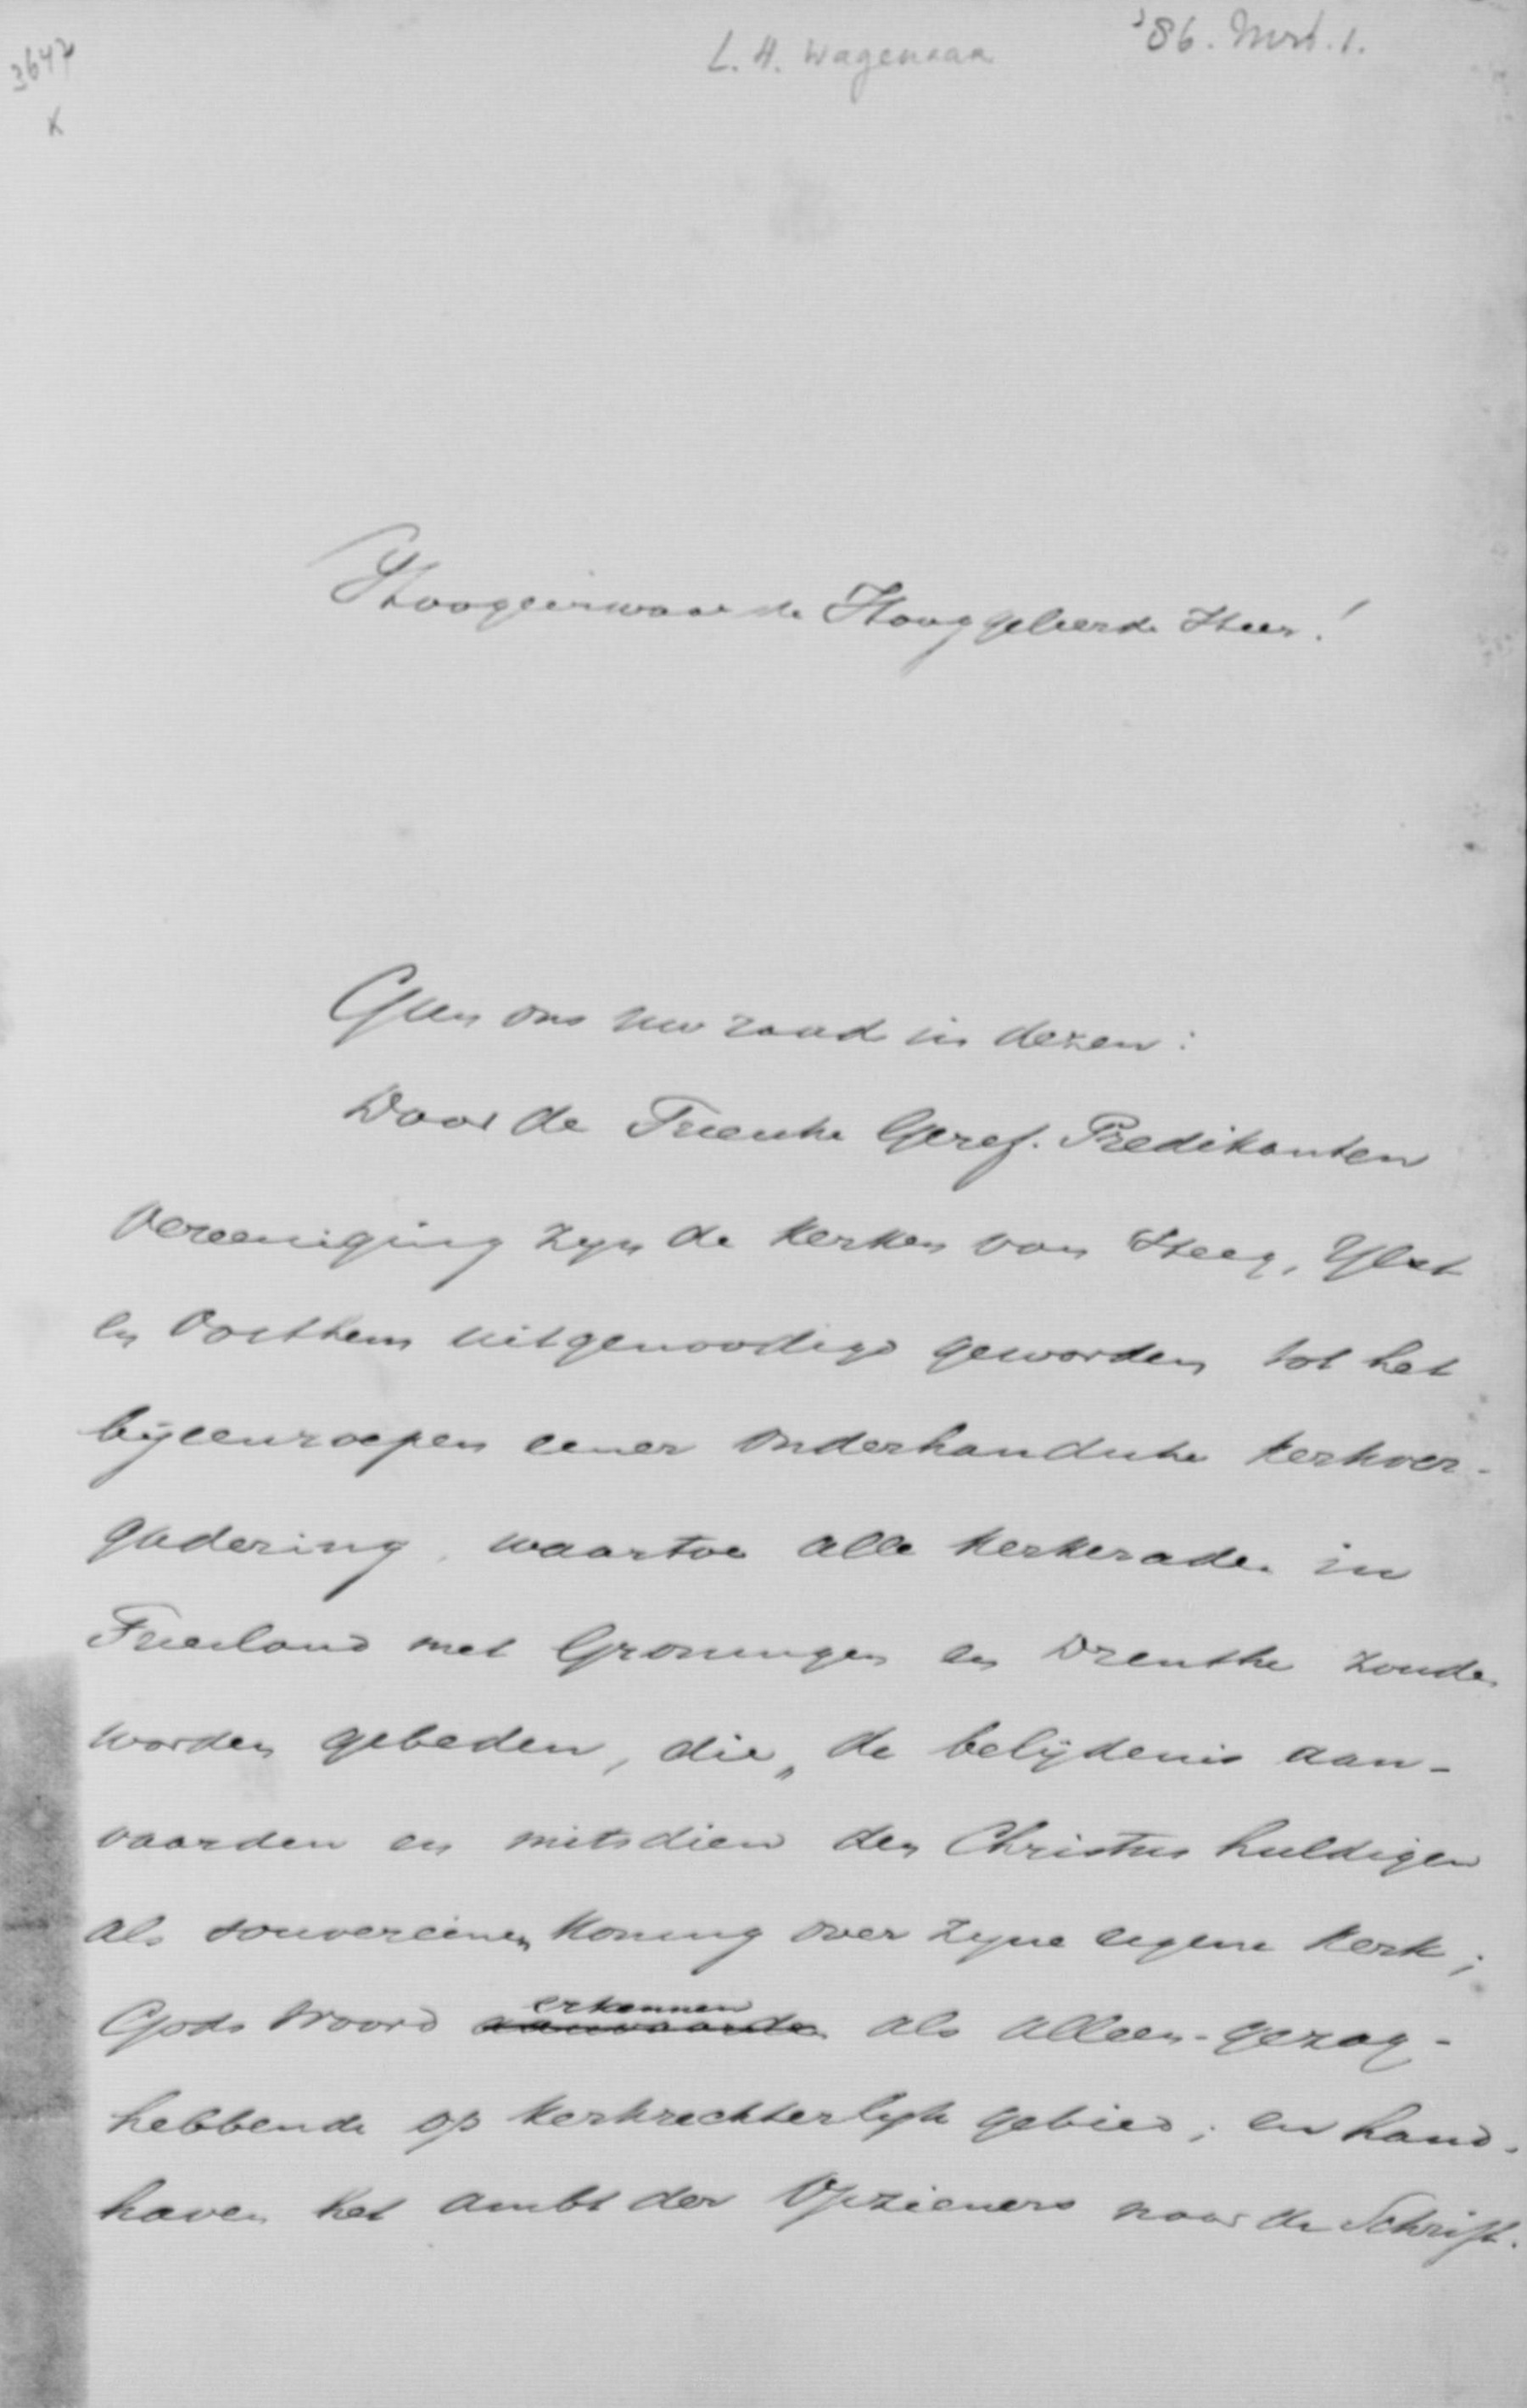 3647
x
L. H. Wagenaar
'86. Mrt. 1.
Hoogeerwaarde Hooggeleerde Heer!
Geen ons uw raad in dezen:
Door de Friesche Geref. Predikanten
vereeniging zijn de kerken van Heeg, IJlst
en Oosthem uitgenoodigd geworden tot het
bijeenroepen eener onderhandsche kerkver-
gadering, waartoe alle kerkeraden in
Friesland met Groningen en Drenthe zouden
worden gebeden, die „de belijdenis aan-
vaarden en mitsdien den Christus huldigen
als souvereinen Koning over zijne eigene kerk;
Gods Woord erkennen aanvaarden als alleen-gezag-
hebbende op kerkrechterlijk gebied; en hand-
haven het ambt der Opzieners naar de Schrift.